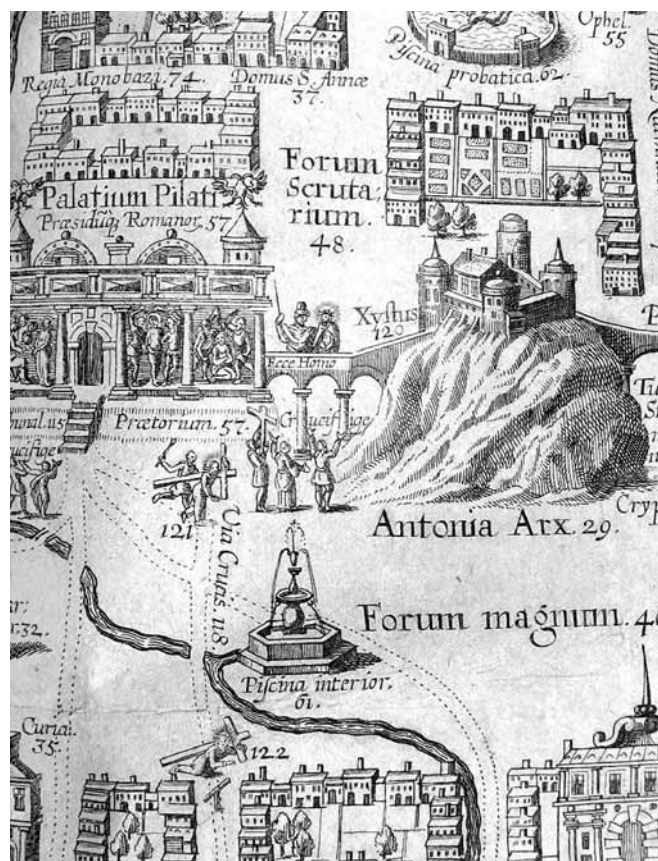 Ophel.
55
Regia Monobazi. 74.
Domus S. Annæ
37.
Piscina probatica. 62.
Palatium Pilati
Præsidiũq; Romanor. 57
Forum
Scruta,
rium.
48.
Xystus
120
Ecce Homo
Prætorium. 57.
Crucifige
ucifige
121
Via Crucis 118
Antonia Arx. 29.
Cryp
Forum magnum. 4
32.
Piscina interior.
61.
Curia.
35.
122